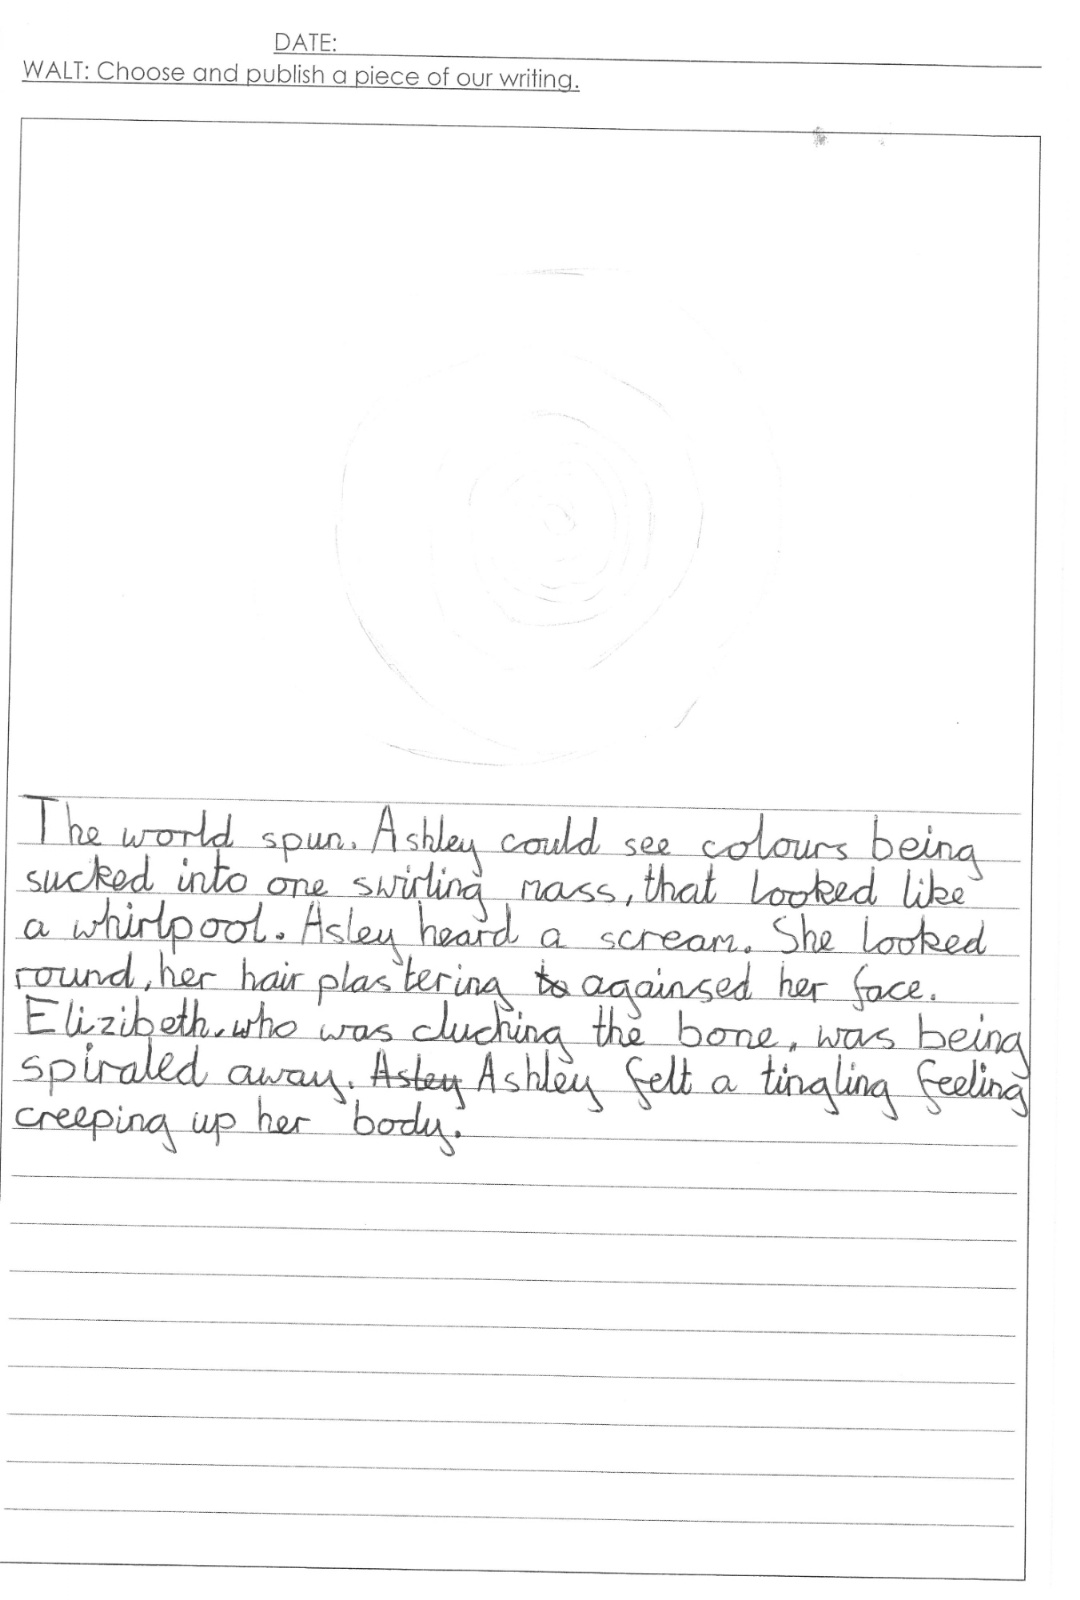 DATE:
WALT: Choose and publish a piece of our writing.
The world spun. Ashley could see colours being
sucked into one swirling mass, that looked like
a whirlpool. Asley heard a scream. She looked
round, her hair plastering to againsed her face.
Elizibeth, who was cluching the bone, was being
spiraled away. Asley Ashley felt a tingling feeling
creeping up her body.